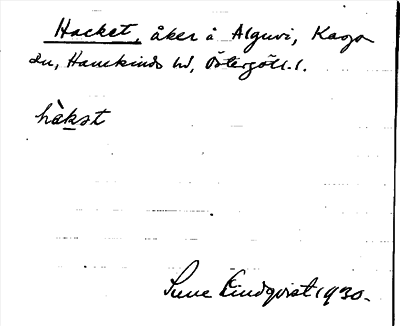 Hacket, åker i Alguvi, Kaga
sn, Hanekinds hd, Östergötl. l.
håkst
Sune Lindqvist 1930.